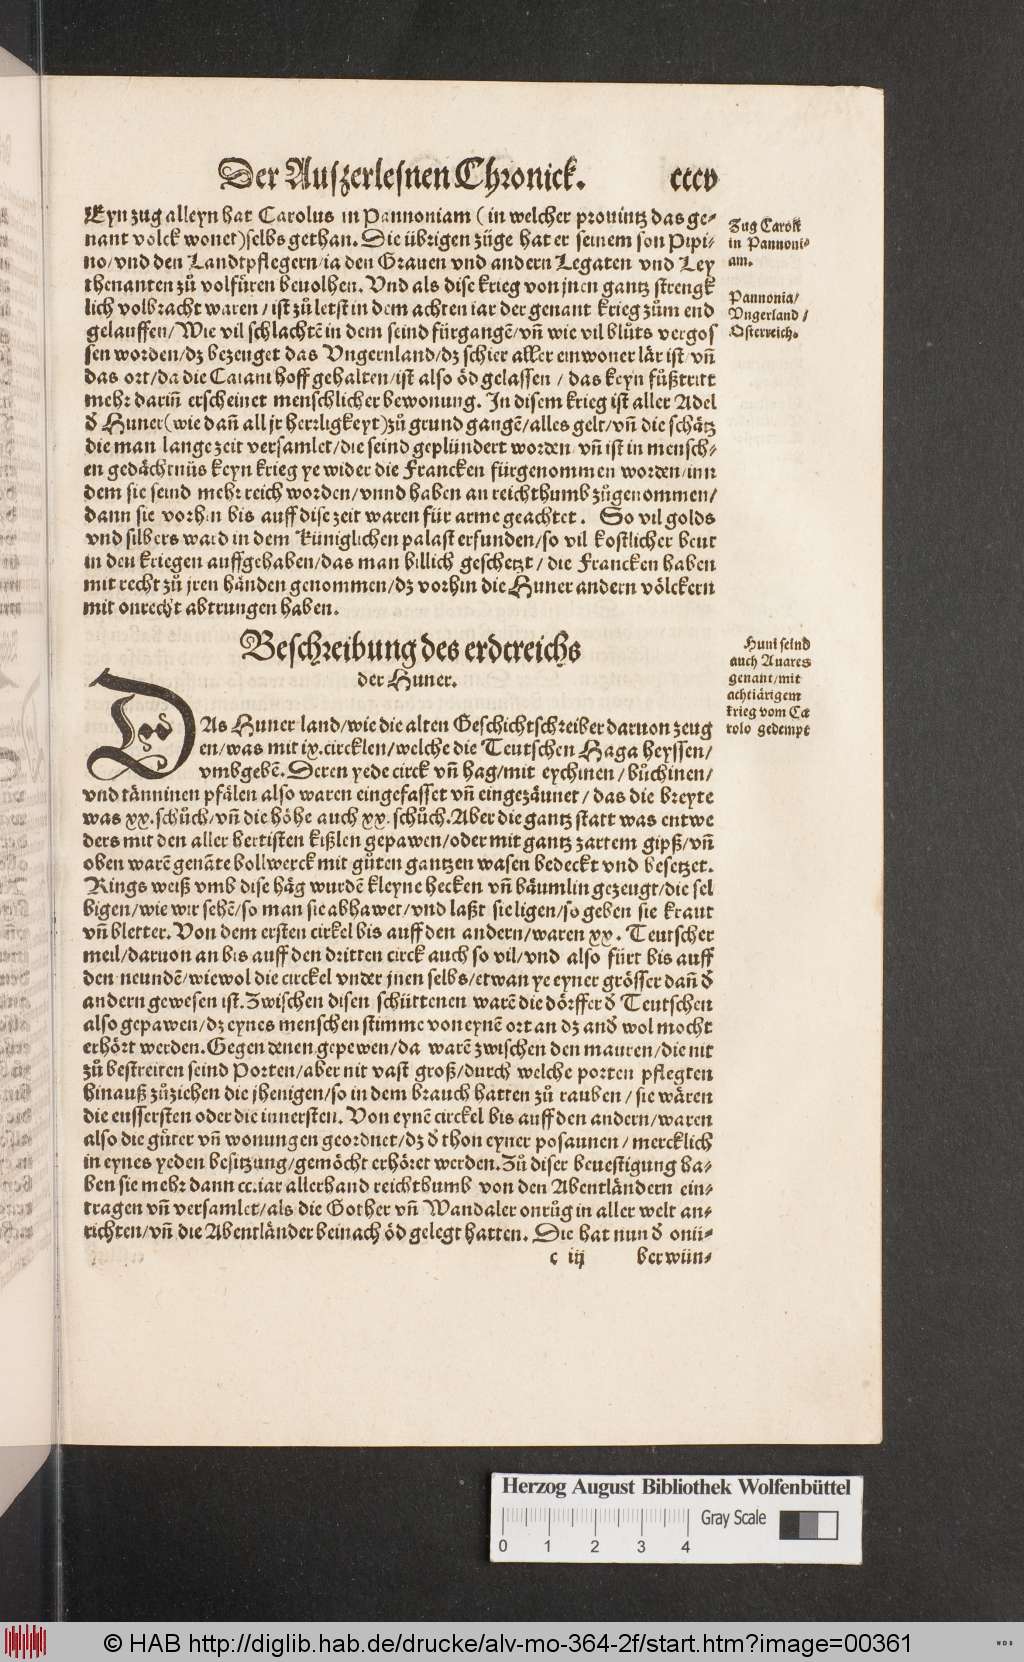 Der Auszerlesnen Chronick. cccv
Eyn zug alleyn hat Carolus in Pannoniam (in welcher prouintz das ge-
nant volck wonet) selbs gethan. Die übrigen züge hat er seinem son Pipi-
no/vnd den Landtpflegern/ia den Grauen vnd andern Legaten vnd Ley
thenanten zů volfüren beuolhen. Vnd als dise krieg von jnen gantz strengk
lich volbracht waren/ist zů letst in dem achten iar der genant krieg zům end
gelauffen/Wie vil schlachtē in dem seind fürgangē/vñ wie vil blůts vergos
sen worden/dz bezeuget das Vngernland/dz schier aller einwoner lär ist/vñ
das ort/da die Caiani hoff gehalten/ist also öd gelassen/das keyn fůßtritt
mehr dariñ erscheinet menschlicher bewonung. In disem krieg ist aller Adel
d̄ Huner(wie dañ all jr herrligkeyt)zů grund gangē/alles gelt/vñ die schätz
die man lange zeit versamlet/die seind geplündert worden/vñ ist in mensch-
en gedächtnüs keyn krieg ye wider die Francken fürgenommen worden/inn
dem sie seind mehr reich worden/vnnd haben an reichthumb zůgenommen/
dann sie vorhin bis auff dise zeit waren für arme geachtet. So vil golds
vnd silbers ward in dem küniglichen palast erfunden/so vil kostlicher beut
in den kriegen auffgehaben/das man billich geschetzt/die Francken haben
mit recht zů jren händen genommen/dz vorhin die Huner andern völckern
mit onrecht abtrungen haben.
Zug Caroli
in Pannoni-
am.
Pannonia/
Vngerland/
Osterreich.
Beschreibung des erdtreichs
der Huner.
Huni seind
auch Auares
genant/mit
achtiärigem
krieg vom Ca
rolo gedempt
DAs Huner land/wie die alten Geschichtschreiber daruon zeug
en/was mit ix. circklen/welche die Teutschen Haga heyssen/
vmbgebē. Deren yede circk vñ hag/mit eychinen/bůchinen/
vnd tänninen pfälen also waren eingefasset vñ eingezäunet/das die breyte
was xx. schůch/vñ die höhe auch xx. schůch. Aber die gantz statt was entwe
ders mit den aller hertisten kißlen gepawen/oder mit gantz zartem gipß/vñ
oben warē genāte bollwerck mit gůten gantzen wasen bedeckt vnd besetzet.
Rings weiß vmb dise häg wurdē kleyne hecken vñ bäumlin gezeugt/die sel
bigen/wie wir sehē/so man sie abhawet/vnd laßt sie ligen/so geben sie kraut
vñ bletter. Von dem ersten cirkel bis auff den andern/waren xx. Teutscher
meil/daruon an bis auff den dritten circk auch so vil/vnd also fürt bis auff
den neundē/wiewol die circkel vnder jnen selbs/etwan ye eyner grösser dañ d̄
andern gewesen ist. Zwischen disen schüttenen warē die dörffer d̄ Teutschen
also gepawen/dz eynes menschen stimme von eynē ort an dz and̄ wol mocht
erhört werden. Gegen denen gepewen/da warē zwischen den mauren/die nit
zů bestreiten seind Porten/aber nit vast groß/durch welche porten pflegten
hinauß zůziehen die jhenigen/so in dem brauch hatten zů rauben/sie wären
die eussersten oder die innersten. Von eynē circkel bis auff den andern/waren
also die gůter vñ wonungen geordnet/dz d̄ thon eyner posaunen/mercklich
in eynes yeden besitzung/gemöcht erhöret werden. Zů diser beuestigung ha-
ben sie mehr dann cc. iar allerhand reichthumb von den Abentländern ein-
tragen vñ versamlet/als die Gother vñ Wandaler onrůg in aller welt an-
richten/vñ die Abentländer beinach öd gelegt hatten. Die hat nun d̄ onü-
c iij berwün-
Herzog August Bibliothek Wolfenbüttel
Gray Scale
0 1 2 3 4
© HAB http://diglib.hab.de/drucke/alv-mo-364-2f/start.htm?image=00361